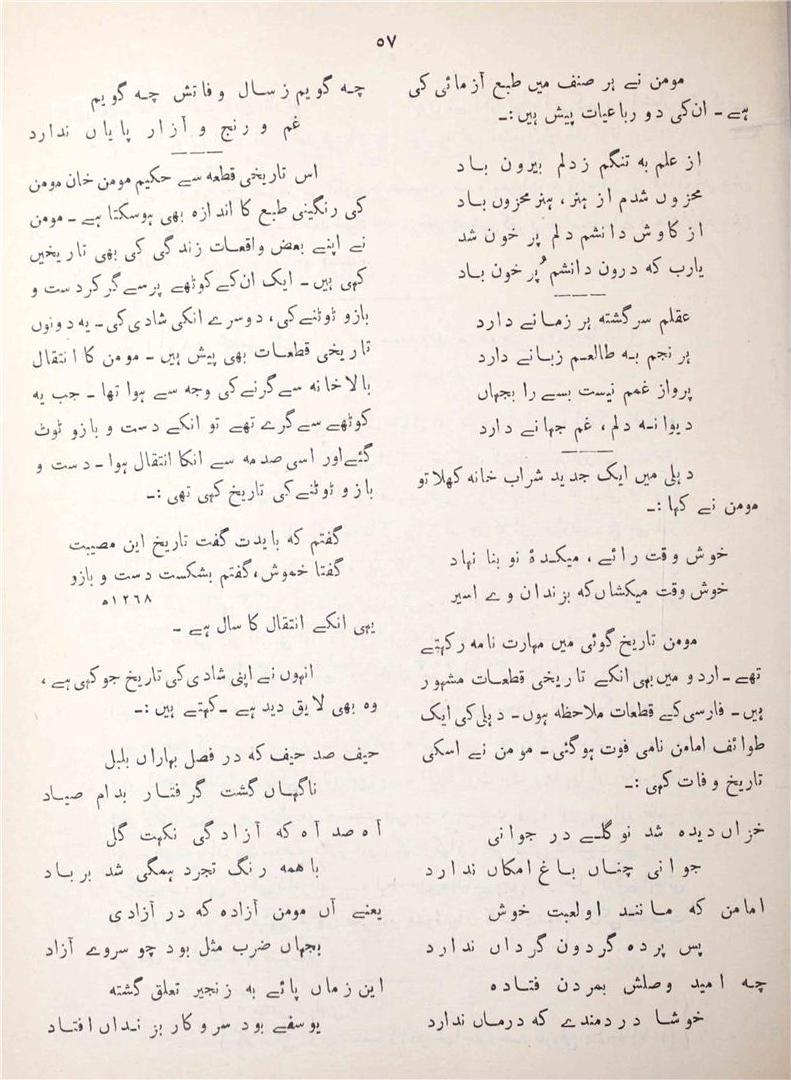 ۵۷
مومن نے ہر صنف میں طبع آزمائی کی
ہے ۔ ان کی دو رباعیات پیش ہیں :۔
از علم بہ تنگم ز دلم بیرون باد
محزوں شدم از ہنر ، ہنر محزوں باد
از کاوش دانشم دلم پر خون شد
یارب کہ درون دانشم پُر خون باد
عقلم سرگشتہ ہر زمانے دارد
ہر نجم بہ طالعم زبانے دارد
پرواز غمم نیست بسے را بجہاں
دیوانہ دلم ، غم جہانے دارد
دہلی میں ایک جدید شراب خانہ کھلا تو
مومن نے کہا :۔
خوش وقت رائے ، میکدۂ نو بنا نہاد
خوش وقت میکشاں کہ بزندان وے اسیر
مومن تاریخ گوئی میں مہارت تامہ رکھتے
تھے ۔ اردو میں بھی انکے تاریخی قطعات مشہور
ہیں ۔ فارسی کے قطعات ملاحظہ ہوں ۔ دہلی کی ایک
طوائف امامن نامی فوت ہوگئی ۔ مومن نے اسکی
تاریخ وفات کہی :۔
خزاں دیدہ شد نو گلے در جوانی
جوانی چناں باغ امکاں ندارد
امامن کہ مانند او لعبت خوش
پس پردہ گردون گرداں ندارد
چہ امید وصلش بمردن فتادہ
خوشا دردمندے کہ درماں ندارد
چہ گویم ز سال وفاتش چہ گویم
غم و رنج و آزار پایاں ندارد
اس تاریخی قطعہ سے حکیم مومن خان مومن
کی رنگینی طبع کا اندازہ بھی ہوسکتا ہے ۔ مومن
نے اپنے بعض واقعات زندگی کی بھی تاریخیں
کہی ہیں ۔ ایک ان کے کوٹھے پر سے گر کر دست و
بازو ٹوٹنے کی ، دوسرے انکی شادی کی ۔ یہ دونوں
تاریخی قطعات بھی پیش ہیں ۔ مومن کا انتقال
بالا خانہ سے گرنے کی وجہ سے ہوا تھا ۔ جب یہ
کوٹھے سے گرے تھے تو انکے دست و بازو ٹوٹ
گئے اور اسی صدمہ سے انکا انتقال ہوا ۔ دست و
بازو ٹوٹنے کی تاریخ کہی تھی :۔
گفتم کہ بایدت گفت تاریخ این مصیبت
گفتا خموش ، گفتم بشکست دست و بازو
۱۲۶۸ھ
یہی انکے انتقال کا سال ہے ۔
انہوں نے اپنی شادی کی تاریخ جو کہی ہے ،
وہ بھی لایق دید ہے ۔ کہتے ہیں :۔
حیف صد حیف کہ در فصل بہاراں بلبل
ناگہاں گشت گرفتار بدام صیاد
آہ صد آہ کہ آزادگی نکہت گل
باہمہ رنگ تجرد ہمگی شد برباد
یعنے آں مومن آزادہ کہ در آزادی
بجہاں ضرب مثل بود چو سروے آزاد
این زماں پائے بہ زنجیر تعلق گشتہ
یوسفے بود سر و کار بزنداں افتاد